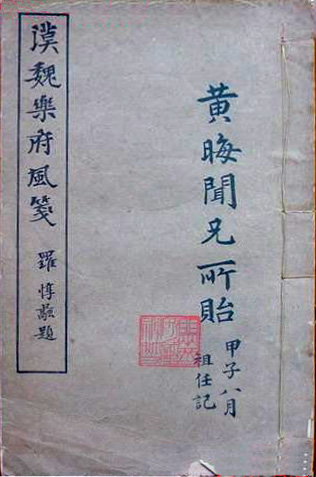 黄晦聞兄所貽
甲子八月
祖任記
漢魏樂府風箋
羅惇曧題